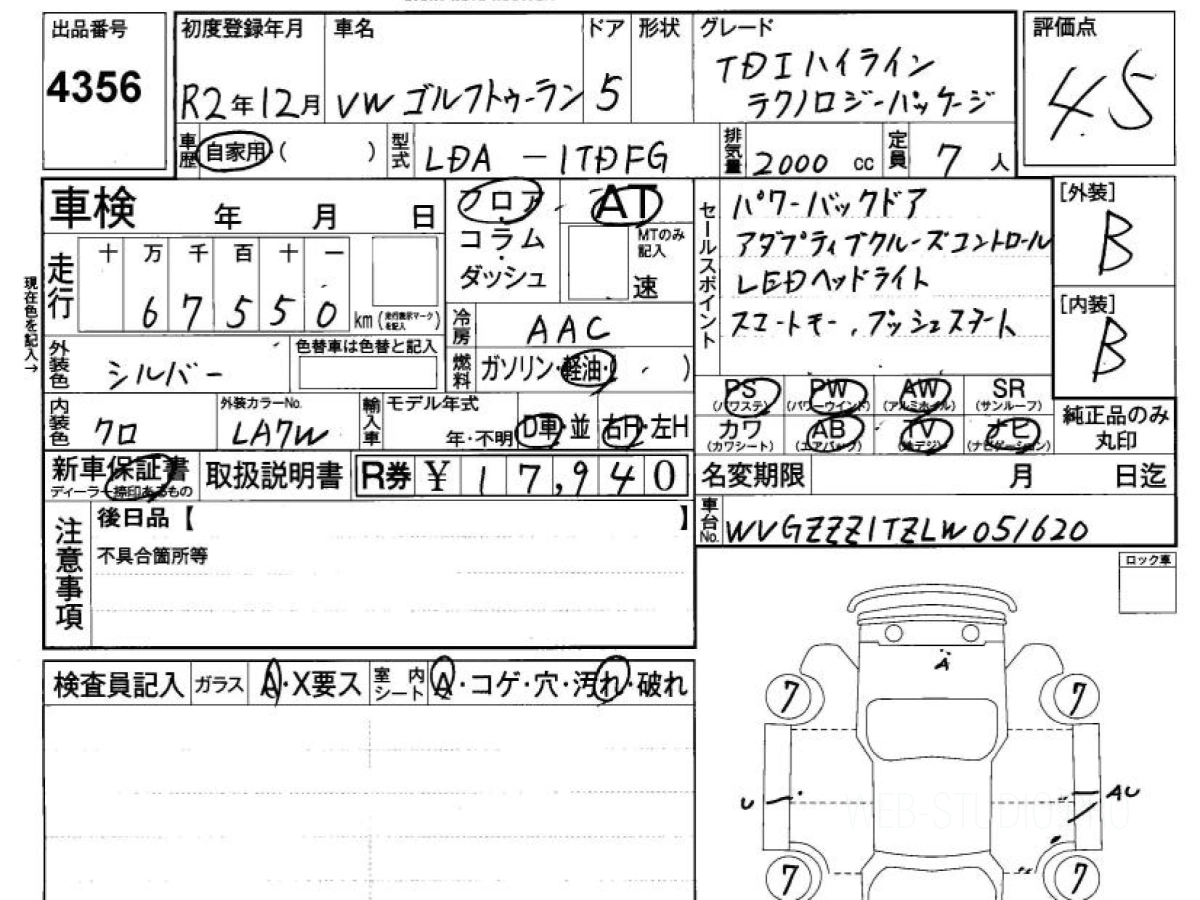 出品番号
4356
初度登録年月
R2年12月
車名
VW ゴルフトゥーラン
ドア
5
形状
グレード
TDIハイライン
テクノロジーパッケージ
評価点
4.5
車歴
自家用( )
型式
LDA-1TDFG
排気量
2000 cc
定員
7人
車検 年 月 日
フロア
コラム
ダッシュ
AT
MTのみ記入
速
セールスポイント
パワーバックドア
アダプティブクルーズコントロール
LEDヘッドライト
スマートキー、プッシュスタート
[外装]
B
[内装]
B
現在色を記入→
走行
十 万 千 百 十 一
6 7 5 5 0
km(走行表示マークを記入)
冷房
AAC
燃料
ガソリン・軽油・( )
外装色
シルバー
色替車は色替と記入
PS
(パワステ)
PW
(パワーウインド)
AW
(アルミホイル)
SR
(サンルーフ)
カワ
(カワシート)
AB
(エアバッグ)
TV
(地デジ)
ナビ
(ナビゲーション)
純正品のみ
丸印
内装色
クロ
外装カラーNo.
LA7W
輸入車
モデル年式
年・不明
D車・並
右H・左H
新車保証書
ディーラー捺印あるもの
取扱説明書
R券 ¥ 17,940
名変期限 月 日迄
車台No.
WVGZZZ1TZLW051620
注意事項
後日品【 】
不具合箇所等
ロック車
検査員記入
ガラス
A・X要ス
室内シート
A・コゲ・穴・汚れ・破れ
A
7
7
U
AU
WEB-STUDIO
7
7